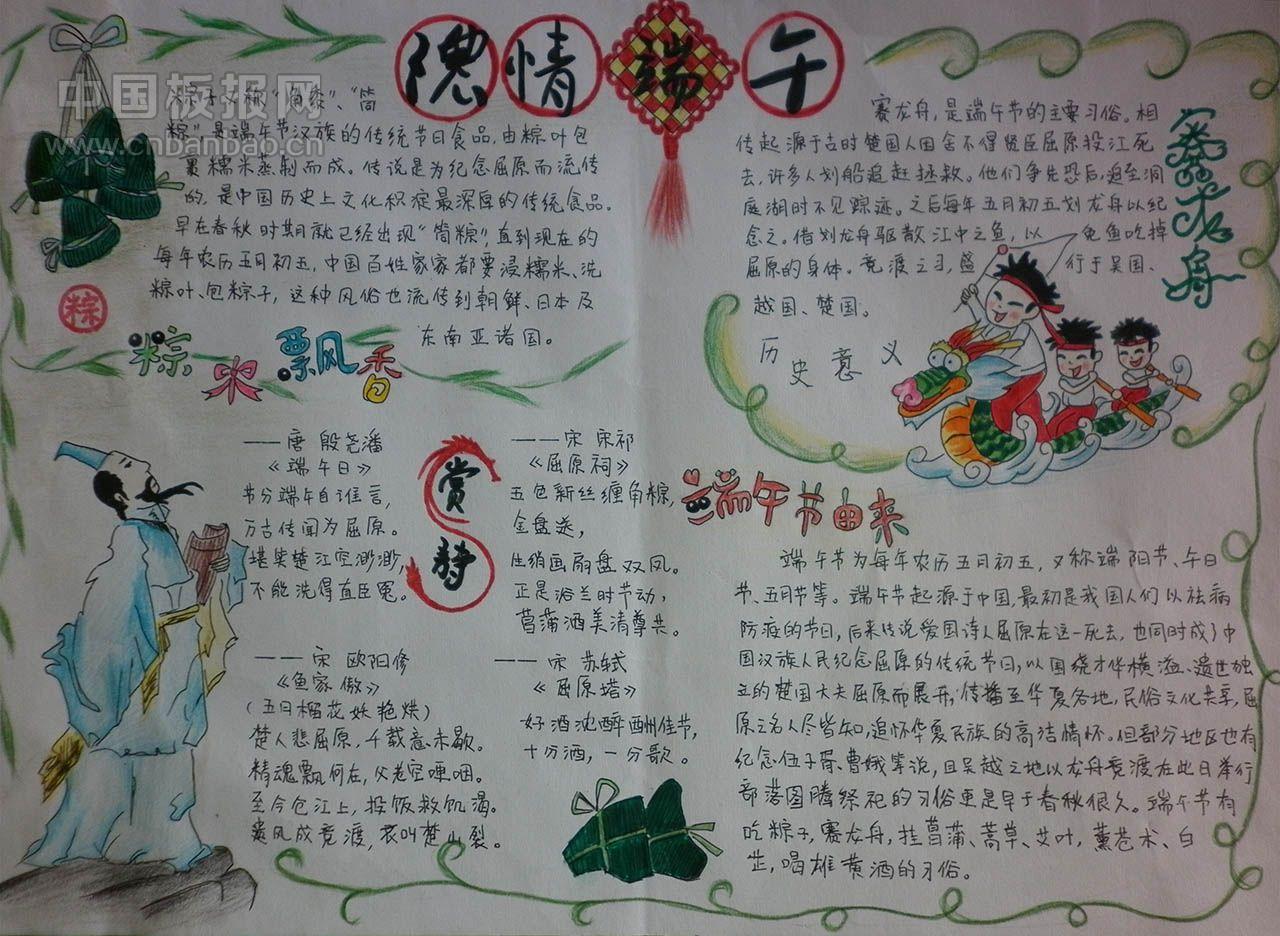 隐情端午
中国板报网
www.cnbanbao.cn
粽子又称“角黍”、“筒
粽”是端午节汉族的传统节日食品,由粽叶包
裹糯米蒸制而成。传说是为纪念屈原而流传
的,是中国历史上文化积淀最深厚的传统食品。
早在春秋时期就已经出现“筒粽”,直到现在的
每年农历五月初五,中国百姓家家都要浸糯米、洗
粽叶、包粽子,这种风俗也流传到朝鲜、日本及
东南亚诸国。
粽
粽米飘香
赛龙舟
赛龙舟,是端午节的主要习俗。相
传起源于古时楚国人因舍不得贤臣屈原投江死
去,许多人划船追赶拯救。他们争先恐后,追至洞
庭湖时不见踪迹。之后每年五月初五划龙舟以纪
念之。借划龙舟驱散江中之鱼,以免鱼吃掉
屈原的身体。竞渡之习,盛行于吴国、
越国、楚国。
历史意义
赏诗
——唐 殷尧潘
《端午日》
节分端午自谁言,
万古传闻为屈原。
堪笑楚江空渺渺,
不能洗得直臣冤。
——宋 宋祁
《屈原祠》
五色新丝缠角粽,
金盘送,
生绡画扇盘双凤。
正是浴兰时节动,
菖蒲酒美清尊共。
——宋 欧阳修
《鱼家傲》
(五月榴花妖艳烘)
楚人悲屈原,千载意未歇。
精魂飘何在,父老空哽咽。
至今仓江上,投饭救饥渴。
遗风成竞渡,哀叫楚山裂。
——宋 苏轼
《屈原塔》
好酒沈醉酬佳节,
十分酒,一分歌。
端午节由来
端午节为每年农历五月初五,又称端阳节、午日
节、五月节等。端午节起源于中国,最初是我国人们以祛病
防疫的节日,后来传说爱国诗人屈原在这一死去,也同时成了中
国汉族人民纪念屈原的传统节日,以围绕才华横溢、遗世独
立的楚国大夫屈原而展开,传播至华夏各地,民俗文化共享,屈
原之名人尽皆知,追怀华夏民族的高洁情怀。但部分地区也有
纪念伍子胥、曹娥等说,且吴越之地以龙舟竞渡在此日举行
部落图腾祭祀的习俗更是早于春秋很久。端午节有
吃粽子,赛龙舟,挂菖蒲、蒿草、艾叶,薰苍术、白
芷,喝雄黄酒的习俗。